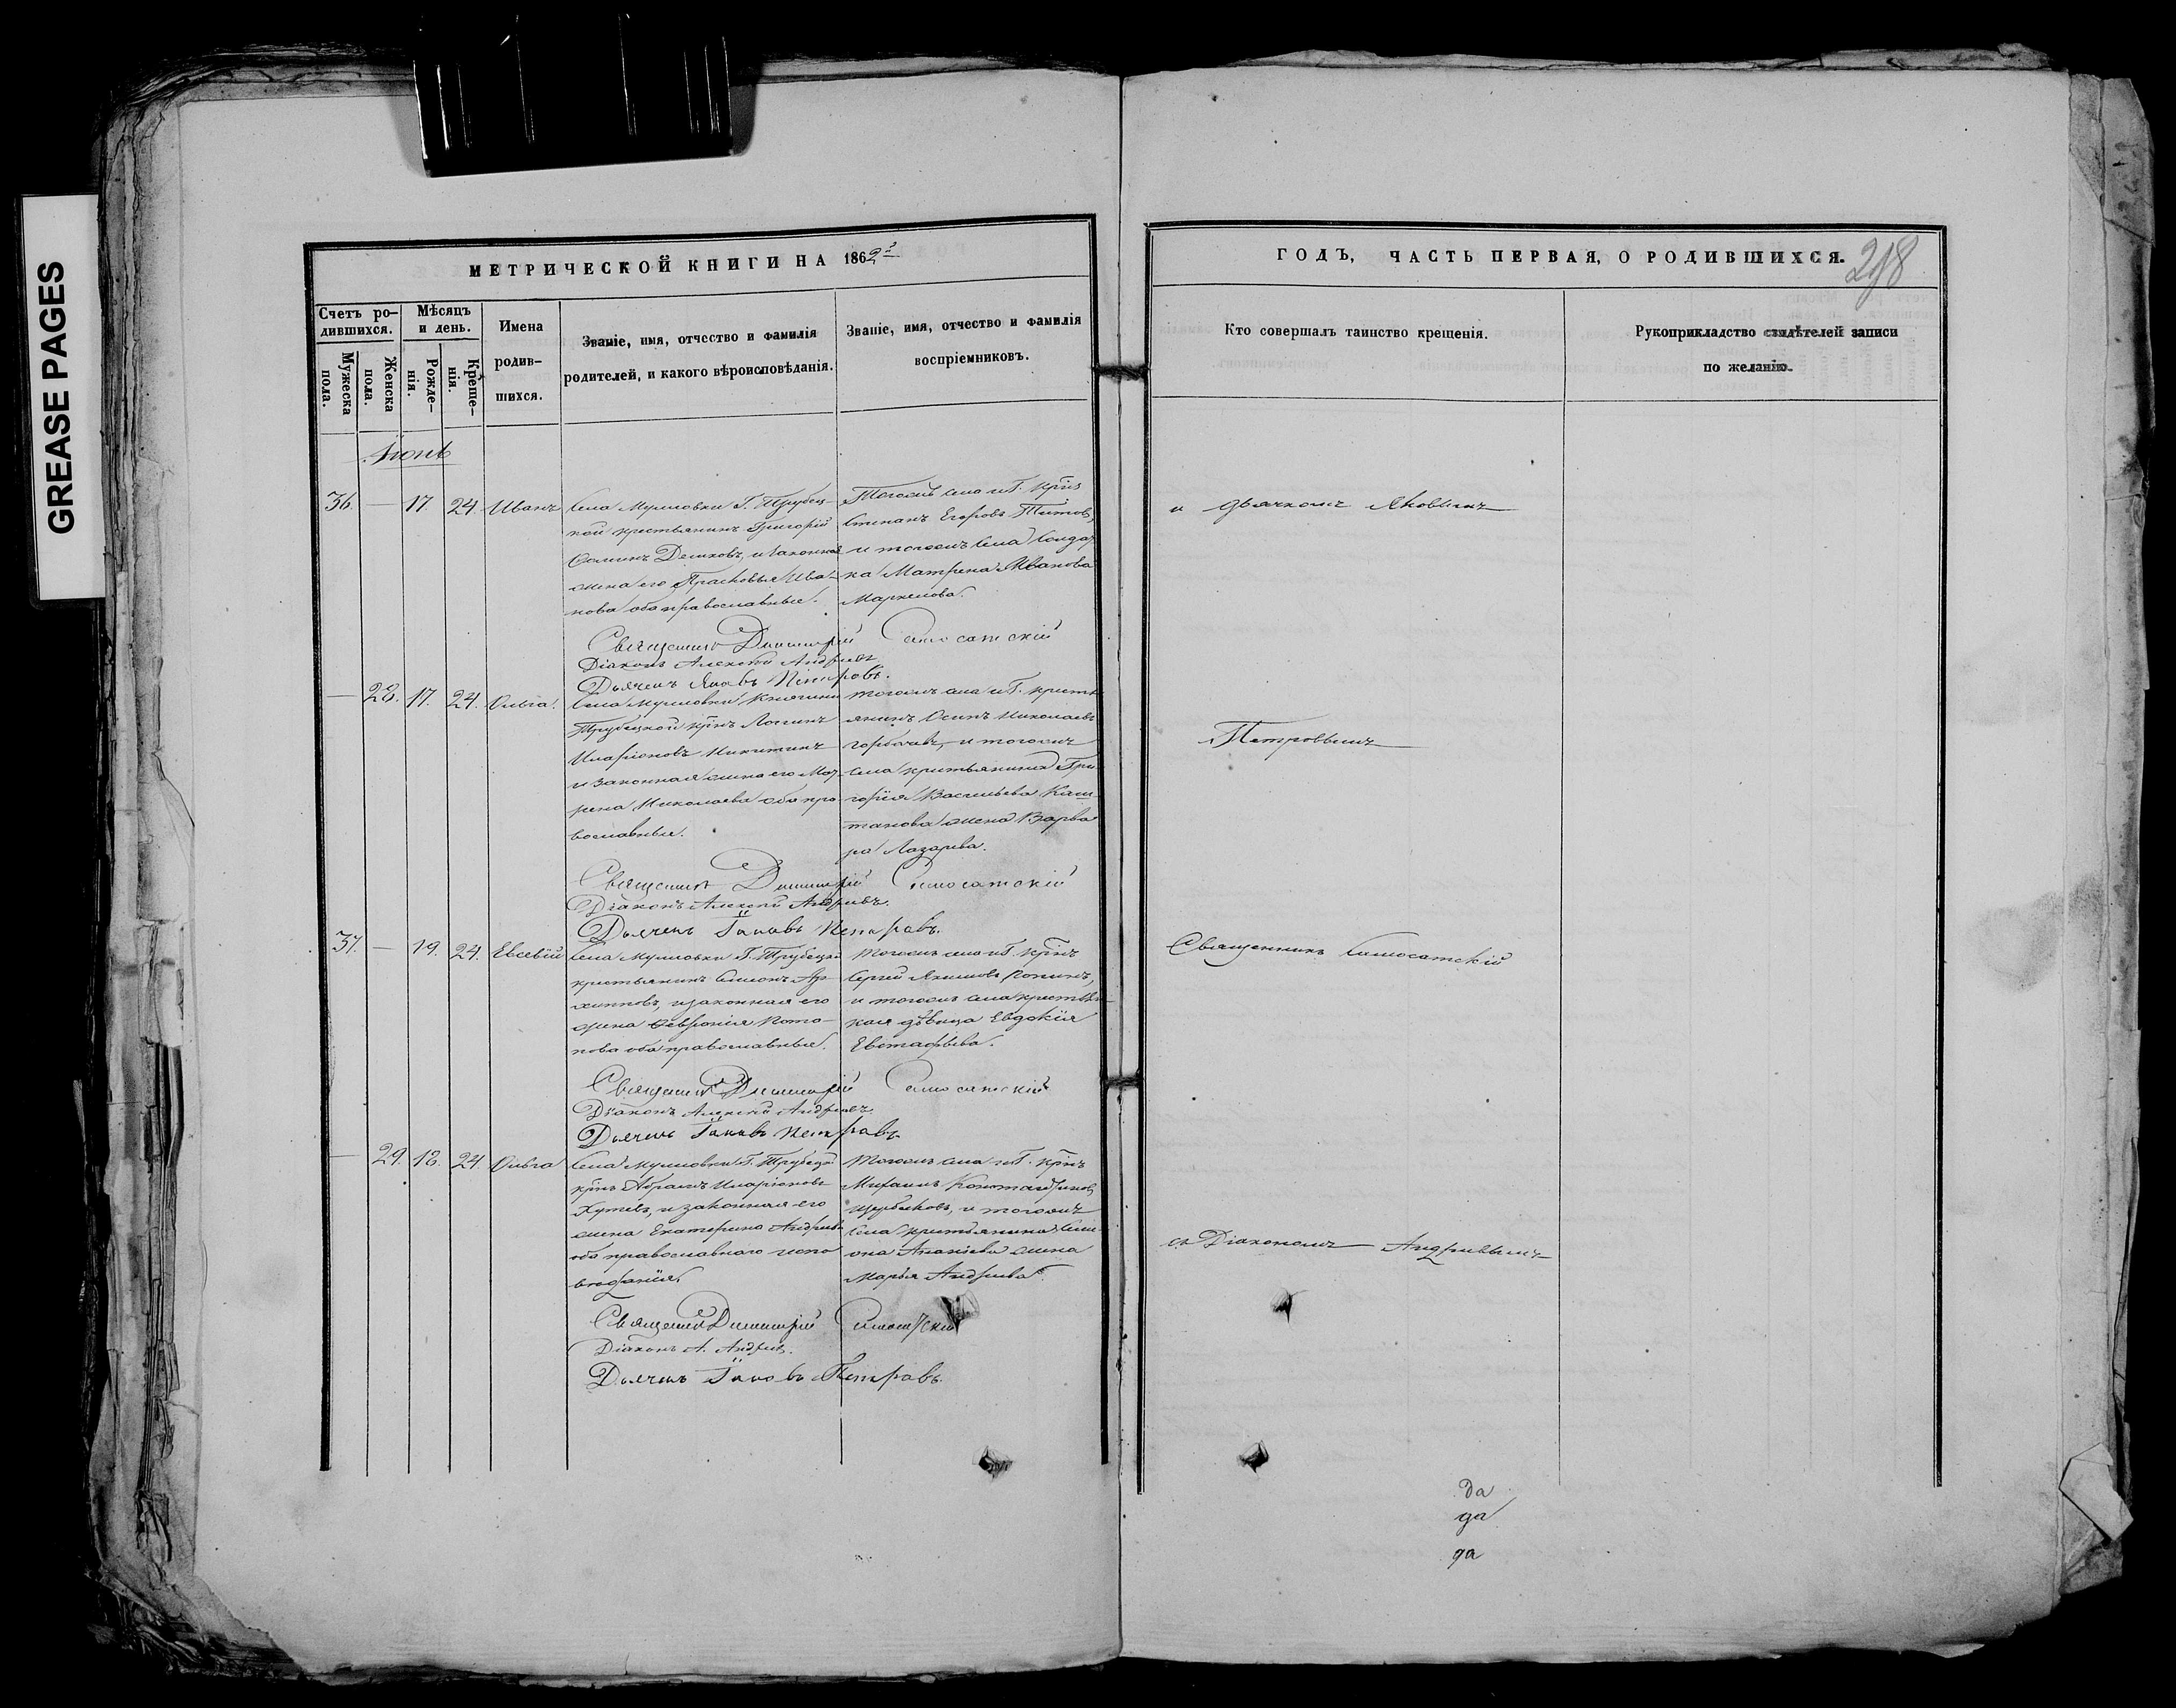 GREASE PAGES
МЕТРИЧЕСКОЙ КНИГИ НА 1862й
ГОДЪ, ЧАСТЬ ПЕРВАЯ, О РОДИВШИХСЯ.
Счетъ ро-
дившихся.
Мужеска
пола.
Женска
пола.
Мѣсяцъ
и день.
Рожде-
нія.
Креще-
нія.
Имена
родив-
шихся.
Званіе, имя, отчество и фамилія
родителей, и какого вѣроисповѣданія.
Званіе, имя, отчество и фамилія
воспріемниковъ.
Кто совершалъ таинство крещенія.
Рукоприкладство свидѣтелей записи
по желанію.
Іюнь
36. — 17 24. Иванъ
Села Муловки Г. Трубец-
кой крестьянинъ Григорій
и законная
жена его Прасковья Ива-
нова оба православные.
Тогожъ села и Г.
Степанъ Егоровъ Титовъ,
и тогожъ села Солдат
ка Матрена Иванова
Маркелова.
и дьячкомъ Яковымъ
Священникъ Димитрій Самосатский
Діаконъ Алексѣй Андреевъ
Дьячекъ Яковъ Петровъ.
— 28. 17. 24. Ольга.
Села Муловки Княгини
Трубецкой крнъ Логинъ
Иларіоновъ Никитинъ
и законная жена его Мат
рена Николаева оба пра
вославные.
тогожъ села и Г. кресть
янинъ Осипъ Николаевъ
Горбачевъ, и тогожъ
села крестьянина Гри
горія Васильева Каш
танова жена Варва
ра Лазарева.
Петровымъ
Священникъ Димитрій Самосатский
Діаконъ Алексѣй Андреевъ.
Дьячекъ Іаковъ Петровъ.
37. — 19. 24. Евсевій
Села Муловки Г. Трубецкой
крестьянинъ Симонъ Ар-
хиповъ, и законная его
жена Февронія Пота-
пова оба православные.
Тогожъ села и Г. крнъ
Сергѣй Якимовъ
и тогожъ села крестьян
ская дѣвица Евдокія
Евстафьева.
Священникъ Самосатскій
Священникъ Димитрій Самосатский
Діаконъ Алексѣй Андреевъ
Дьячекъ Іаковъ Петровъ
— 29. 18. 24. Ольга
Села Муловки Г. Трубецкой
крнъ Абрамъ Иларіоновъ
и законная его
жена Екатерина Андреева
оба православнаго испо
вѣданія.
Тогожъ села и Г. крнъ
Михаилъ Константиновъ
Щербаковъ, и тогожъ
села крестьянина Сим
она Ананіева жена
Марья Андреева.
съ Діакономъ Андреевымъ
Священникъ Димитрій
Діаконъ А. Андреевъ.
Дьячекъ Іаковъ Петровъ.
да
да
да